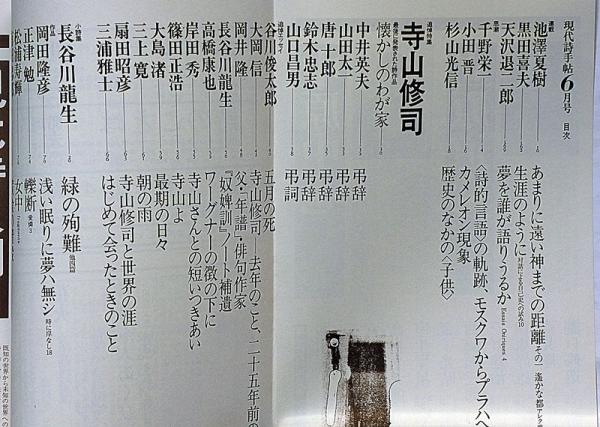 現代詩手帖6月号 目次
連載
池澤夏樹 あまりに遠い神までの距離 その一 遙かな都アレク
黒田喜夫 生涯のように 対話による自己史への試み10
天沢退二郎 夢を誰が語りうるか Essais Oniriques 4
思潮
千野栄一 〈詩的言語〉の軌跡、モスクワからプラハへ
小田晋 カメレオン現象
杉山光信 歴史のなかの〈子供〉
追悼特集
寺山修司
最後に発表された詩作品
懐かしのわが家
中井英夫 弔辞
山田太一 弔辞
唐十郎 弔辞
鈴木忠志 弔辞
山口昌男 弔詞
追悼エッセイ
谷川俊太郎 五月の死
大岡信 寺山修司―去年のこと、二十五年前の
岡井隆 父・年譜・俳句作家
長谷川龍生 『奴婢訓』ノート補遺
高橋康也 ワーグナーの徴の下に
岸田秀 寺山さんとの短いつきあい
篠田正浩 寺山よ
大島渚 最期の日々
三上寛 朝の雨
扇田昭彦 寺山修司と世界の涯
三浦雅士 はじめて会ったときのこと
小詩集
長谷川龍生 緑の殉難 他四篇
作品
岡田隆彦 浅い眠りに夢ハ無シ 時に岸なし18
正津勉 轢断
松浦寿輝 女中
既知の世界から未知の世界への